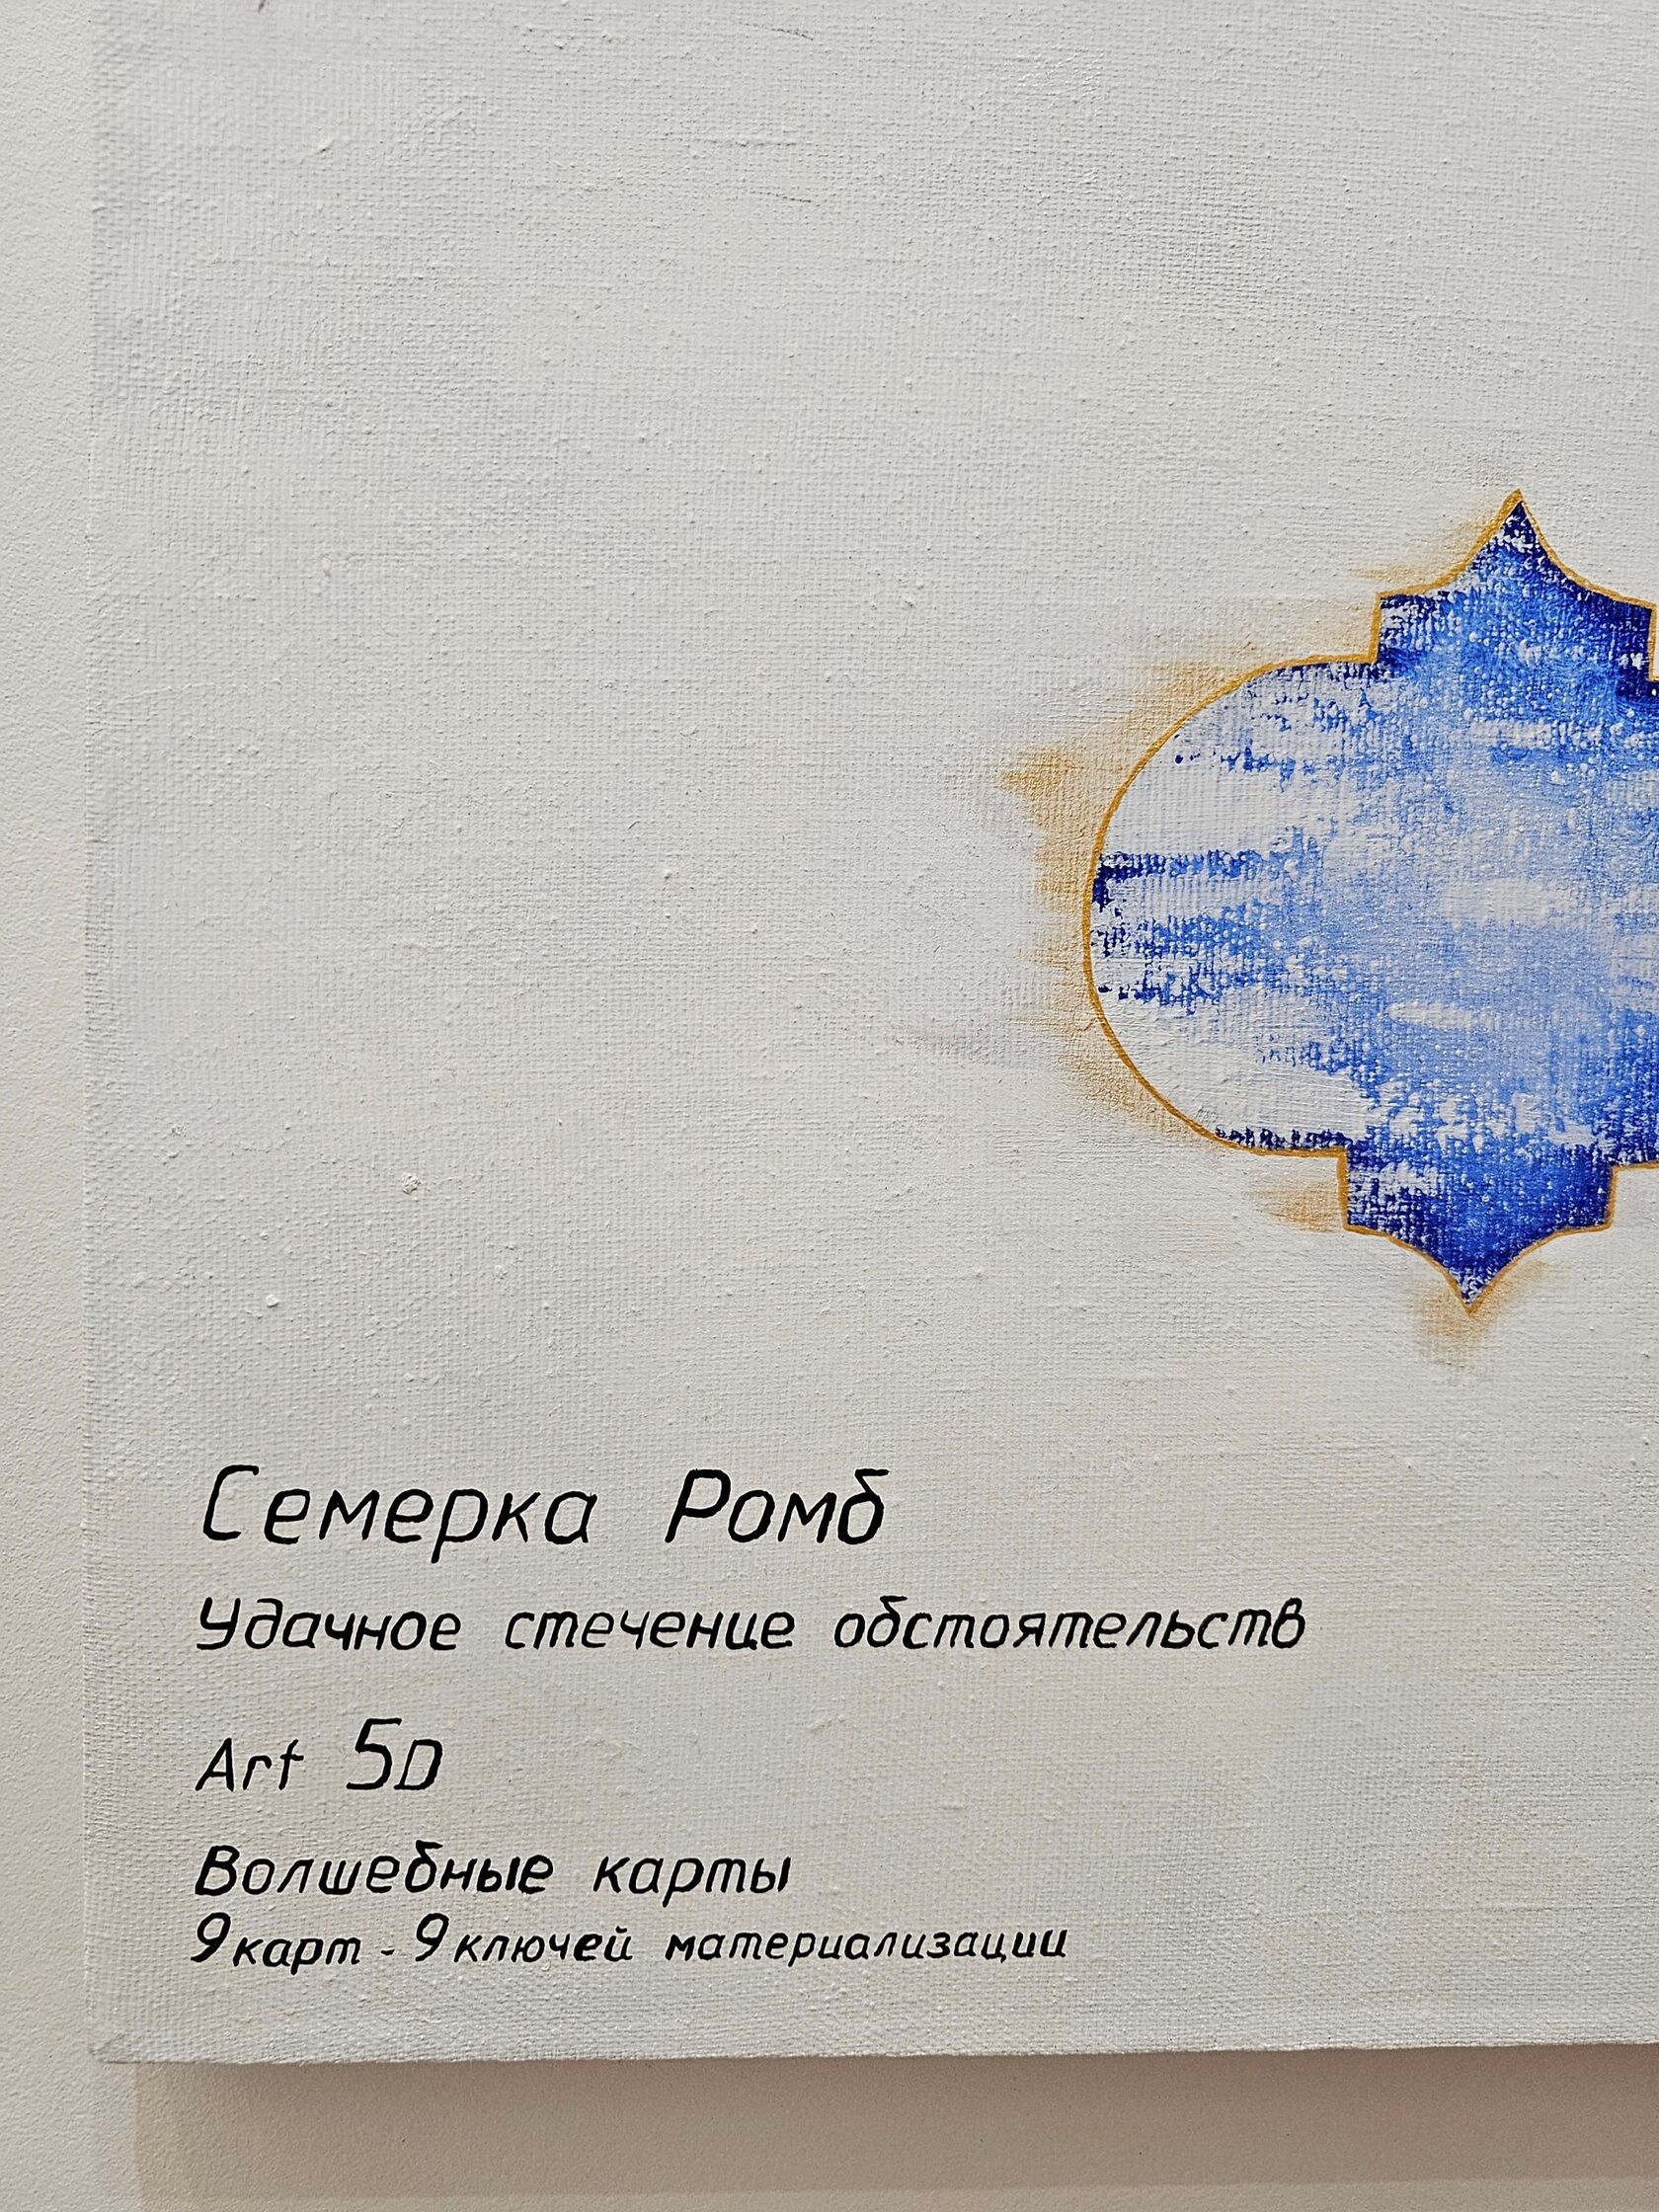 Семерка Ромб
Удачное стечение обстоятельств
Art 5D
Волшебные карты
9 карт - 9 ключей материализации